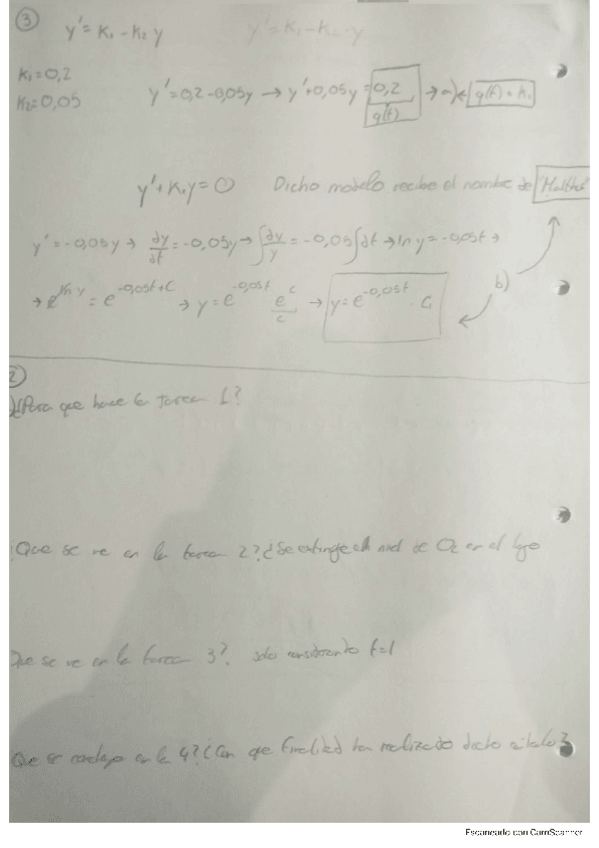 ③ y' = K₁ - K₂ y
y' = K₁ - K₂ · y
K₁ = 0,2
K₂ = 0,05
y' = 0,2 - 0,05y → y' + 0,05y = 0,2 → a) g(t) = K₁
g(t)
y' + K₂ y = 0 Dicho modelo recibe el nombre de Malthus
y' = -0,05y → dy/dt = -0,05y → ∫dy/y = -0,05∫dt → ln y = -0,05t →
→ e^ln y = e^-0,05t+C → y = e^-0,05t e^c → y = e^-0,05t · C
c
b)
2)
¿Para que hace la tarea 1?
Que se ve en la tarea 2? ¿Se extinge el nivel de O₂ en el lago
Que se ve en la tarea 3? solo considerando t=1
Que se concluye en la 4? ¿Con que finalidad ha realizado dicho
Escaneado con CamScanner